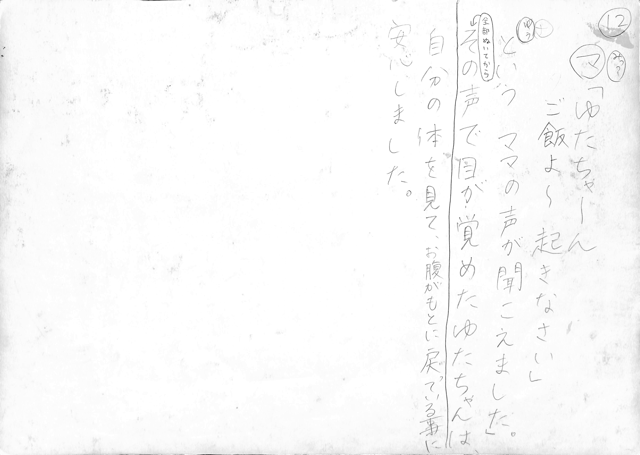 12
マ
「ゆたちゃ〜ん
ご飯よ〜 起きなさい」
ゆう
という ママの声が聞こえました。
全部ぬいてから
その声で目が覚めたゆたちゃんは、
自分の体を見て、お腹がもとに戻っている事に
安心しました。